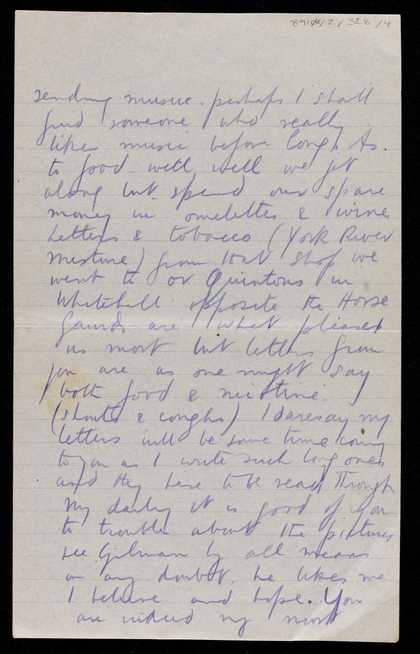 8914/2/328/4
sending music. perhaps I shall
find someone who really
likes music before long. As
to food well well we get
along but spend our spare
money in omelettes & wine
Letters & tobacco (York River
Mixture) from that shop we
went to or Quintons in
Whitehall opposite the Horse
Gaurds are what pleases
us most but letters from
you are as one might say
both food & nicotine.
(shouts & coughs) I daresay my
letters will be some time coming
to you as I write such long ones
and they have to be read through
My darling it is good of you
to trouble about the pictures
see Gilman by all means
on any doubt. he likes me
I believe and hope. You
are indeed my most